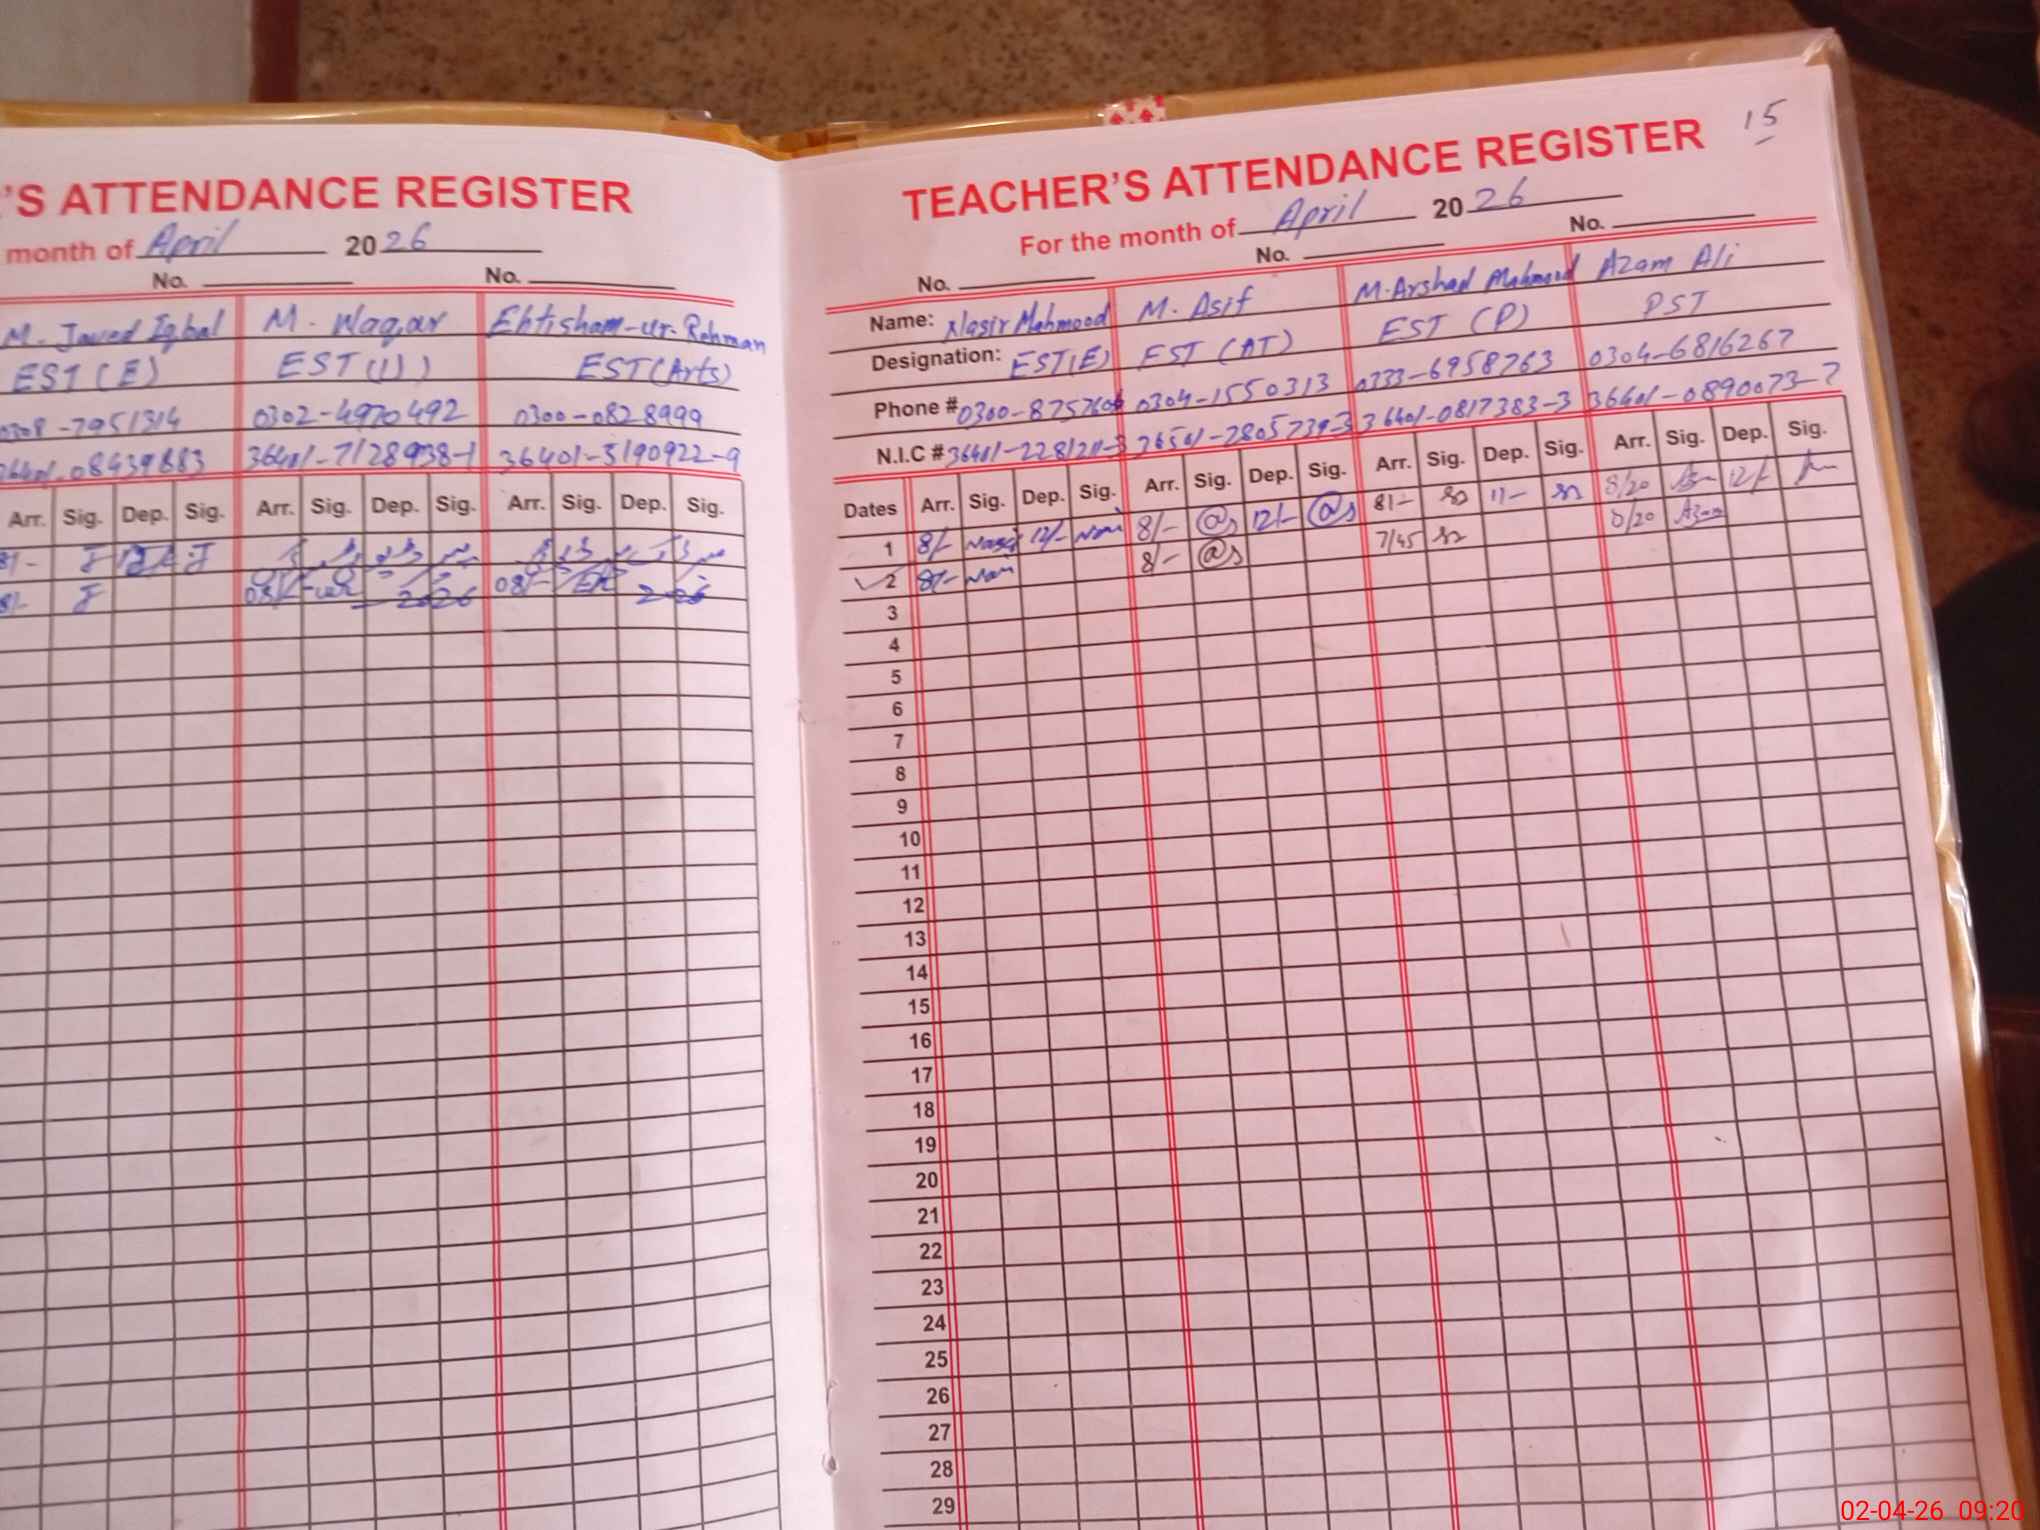 'S ATTENDANCE REGISTER
month of April 2026
No. No.
M. Javed Iqbal M. Waqar Ehtisham-ur-Rehman
EST (E) EST (I) EST (Arts)
0308-7951314 0302-4970492 0300-0828999
36401-7128938-1 36401-5190922-9
Arr. Sig. Dep. Sig. Arr. Sig. Dep. Sig. Arr. Sig. Dep. Sig.
8/-
8/- 08/- 2026 08/- 2026
15
TEACHER'S ATTENDANCE REGISTER
For the month of April 2026
No. No. No.
Name: Nasir Mehmood M. Asif M. Arshad Mahmood Azam Ali
Designation: EST(E) EST (AT) EST (P) PST
Phone # 0304-1550313 0333-6958763 0304-6816267
N.I.C # 36401-0817383-3 36401-0890073-7
Dates Arr. Sig. Dep. Sig. Arr. Sig. Dep. Sig. Arr. Sig. Dep. Sig. Arr. Sig. Dep. Sig.
1 8/- Nasir 12/- 8/- 12/- 8/- 11- 8/20 12/-
2 8/- 8/- 7/45 8/20 Azam
3
4
5
6
7
8
9
10
11
12
13
14
15
16
17
18
19
20
21
22
23
24
25
26
27
28
29
02-04-26 09:20